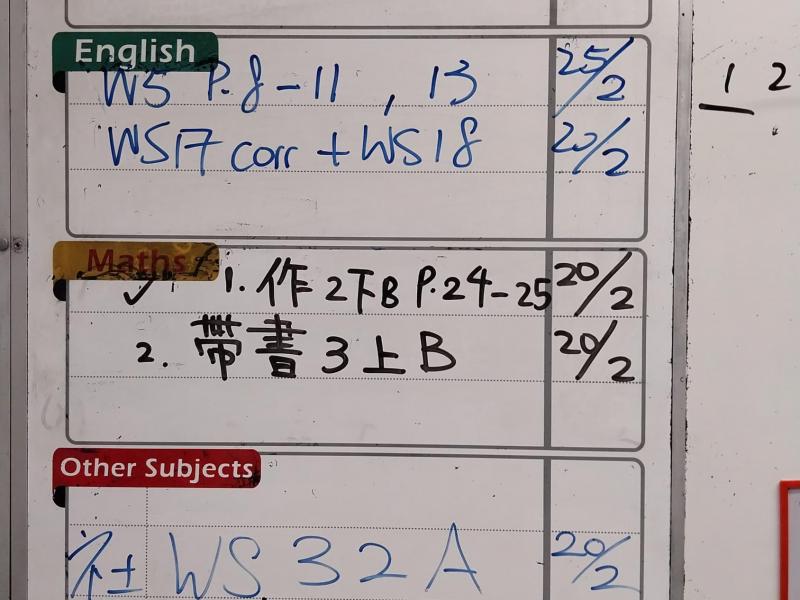 English
WS P.8-11, 13 25/2
WS17 corr + WS18 20/2
Maths
✓ 1. 作2下B P.24-25 20/2
2. 帶書3上B 20/2
Other Subjects
社 WS 32A 20/2
1 2